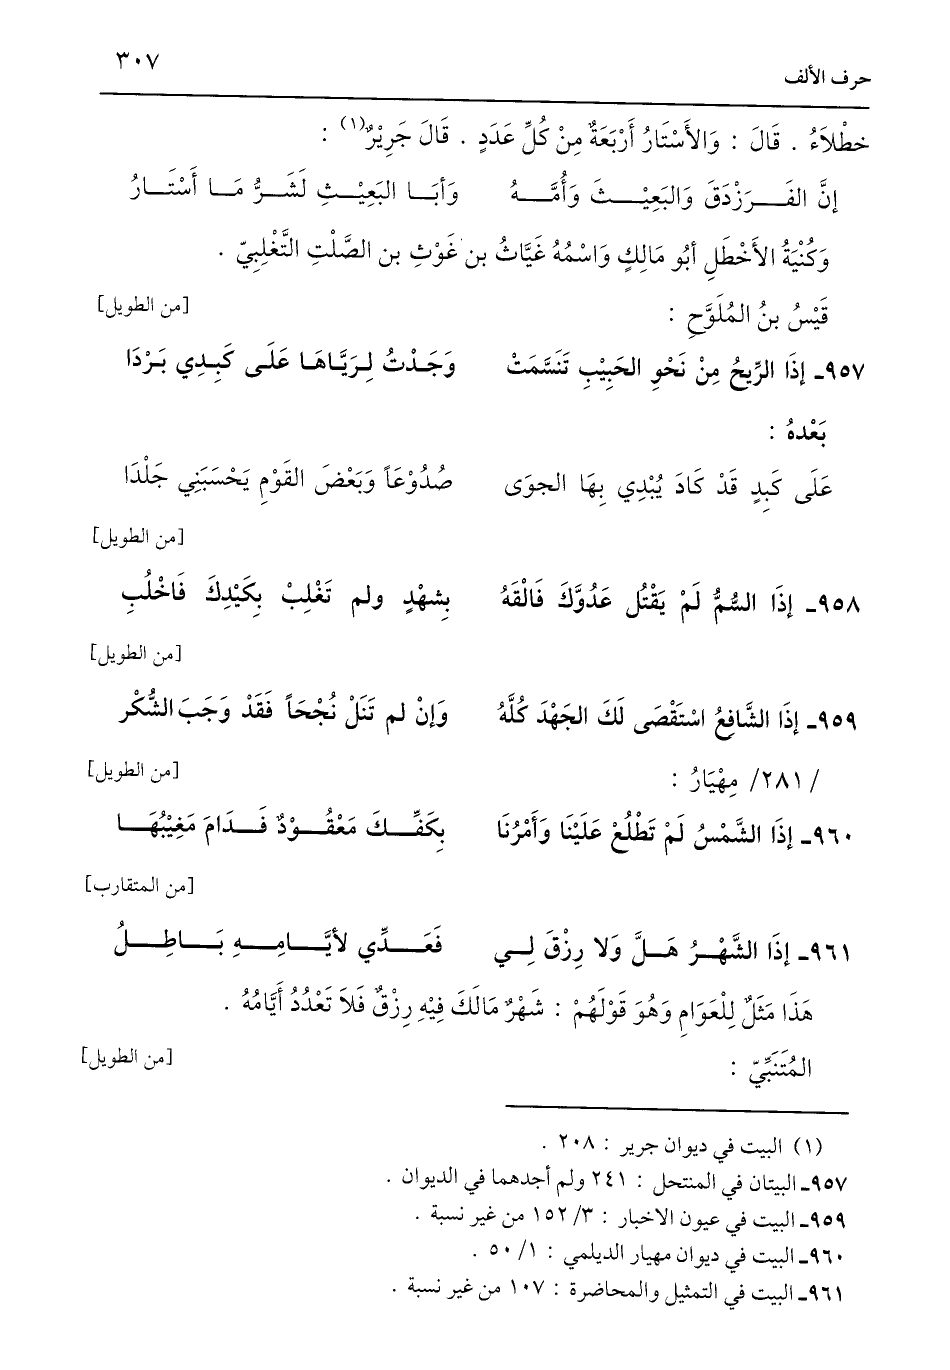 حرف الألف ٣٠٧
خطْلاَءُ . قَالَ : وَالأَسْتَارُ أَرْبَعَةٌ مِنْ كُلِّ عَدَدٍ . قَالَ جَرِيْرٌ(١) :
إنَّ الفَـــرَزْدَقَ وَالبَعِيْـــثَ وَأُمَّـــهُ وَأبَـا البَعِيْـثِ لَشَـرُّ مَـا أَسْتَـارُ
وَكُنْيَةُ الأَخْطَلِ أَبُو مَالِكٍ وَاسْمُهُ غَيَّاثُ بن غَوْثِ بن الصَّلْتِ التَّغْلِبِيّ .
قَيْسُ بنُ المُلَوَّحِ : [من الطويل]
٩٥٧ـ إذَا الرِّيحُ مِنْ نَحْوِ الحَبِيْبِ تَنَسَّمَتْ وَجَدْتُ لِرَيَّاهَا عَلَى كَبِدِي بَرْدَا
بَعْدهُ :
عَلَى كَبِدٍ قَدْ كَادَ يُبْدِي بِهَا الجوَى صُدُوْعَاً وَبَعْضَ القَوْمِ يَحْسَبَنِي جَلْدَا
[من الطويل]
٩٥٨ـ إذَا السُّمُّ لَمْ يَقْتُل عَدُوَّكَ فَالْقَهُ بِشهْدٍ ولم تَغْلِبْ بِكَيْدِكَ فَاخْلُبِ
[من الطويل]
٩٥٩ـ إذَا الشَّافِعُ اسْتَقْصَى لَكَ الجَهْدَ كُلَّهُ وَإنْ لم تَنَلْ نُجْحَاً فَقَدْ وَجَبَ الشُّكْر
/ ٢٨١/ مِهْيَارُ : [من الطويل]
٩٦٠ـ إذَا الشَّمْسُ لَمْ تَطْلُعْ عَلَيْنَا وَأَمْرُنَا بِكَفِّـــكَ مَعْقُـــوْدٌ فَـــدَامَ مَغِيْبُهَـــا
[من المتقارب]
٩٦١ـ إذَا الشَّهْـرُ هَـلَّ وَلا رِزْقَ لِـي فَعَـــدِّي لأيَّـــامِـــهِ بَـــاطِـــلُ
هَذَا مَثَلٌ لِلْعَوَامِ وَهُوَ قَوْلَهُمْ : شَهْرٌ مَالَكَ فِيْهِ رِزْقٌ فَلاَ تَعْدُدْ أَيَّامُهُ .
المُتَنَبِّيّ : [من الطويل]
(١) البيت في ديوان جرير : ٢٠٨ .
٩٥٧ـ البيتان في المنتحل : ٢٤١ ولم أجدهما في الديوان .
٩٥٩ـ البيت في عيون الاخبار : ٣/ ١٥٢ من غير نسبة .
٩٦٠ـ البيت في ديوان مهيار الديلمي : ١/ ٥٠ .
٩٦١ـ البيت في التمثيل والمحاضرة : ١٠٧ من غير نسبة .